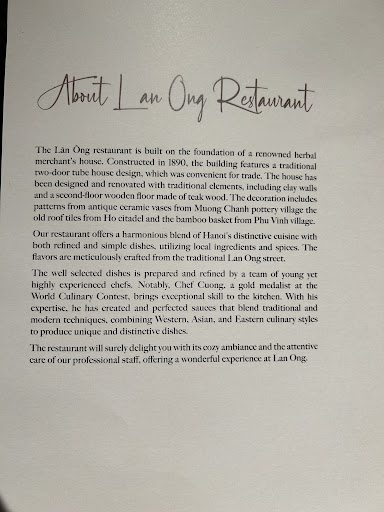 About Lan Ong Restaurant
The Lãn Ông restaurant is built on the foundation of a renowned herbal
merchant's house. Constructed in 1890, the building features a traditional
two-door tube house design, which was convenient for trade. The house has
been designed and renovated with traditional elements, including clay walls
and a second-floor wooden floor made of teak wood. The decoration includes
patterns from antique ceramic vases from Muong Chanh pottery village the
old roof tiles from Ho citadel and the bamboo basket from Phu Vinh village.
Our restaurant offers a harmonious blend of Hanoi's distinctive cuisine with
both refined and simple dishes, utilizing local ingredients and spices. The
flavors are meticulously crafted from the traditional Lan Ong street.
The well selected dishes is prepared and refined by a team of young yet
highly experienced chefs. Notably, Chef Cuong, a gold medalist at the
World Culinary Contest, brings exceptional skill to the kitchen. With his
expertise, he has created and perfected sauces that blend traditional and
modern techniques, combining Western, Asian, and Eastern culinary styles
to produce unique and distinctive dishes.
The restaurant will surely delight you with its cozy ambiance and the attentive
care of our professional staff, offering a wonderful experience at Lan Ong.